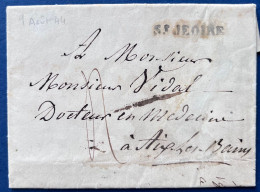 1 Août 44
ST JEOIRE
A Monsieur
Monsieur Vidal
Docteur en Médecine
à Aix les Bains